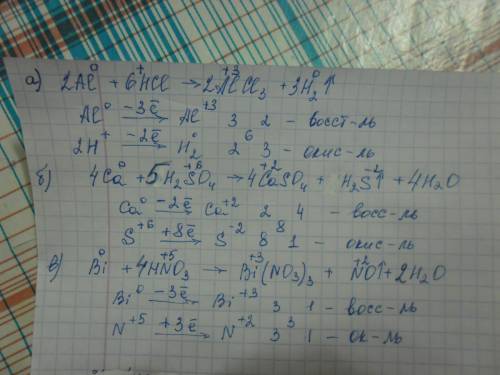 а) 2Al⁰ + 6H⁺Cl → 2Al⁺³Cl₃ + 3H₂⁰↑
Al⁰ —3ē→ Al⁺³ 3 2 – восст-ль
2H⁺ —2ē→ H₂⁰ 2 6 3 – окис-ль
б) 4Ca⁰ + 5H₂S⁺⁶O₄ → 4Ca⁺²SO₄ + H₂S⁻²↑ + 4H₂O
Ca⁰ —2ē→ Ca⁺² 2 4 – восс-ль
S⁺⁶ +8ē→ S⁻² 8 8 1 – окис-ль
в) Bi⁰ + 4HN⁺⁵O₃ → Bi⁺³(NO₃)₃ + N⁺²O↑ + 2H₂O
Bi⁰ —3ē→ Bi⁺³ 3 1 – восс-ль
N⁺⁵ +3ē→ N⁺² 3 3 1 – ок-ль